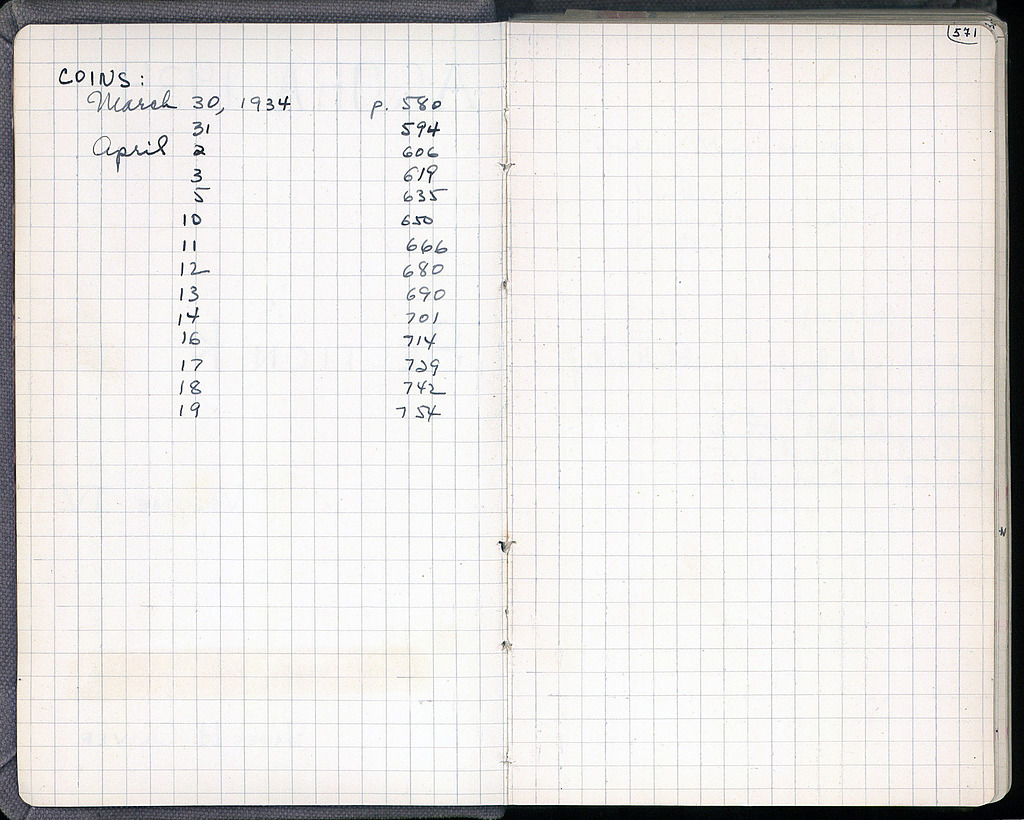 COINS:
March 30, 1934 p. 580
31 594
April 2 606
3 619
5 635
10 650
11 666
12 680
13 690
14 701
16 714
17 729
18 742
19 754
571